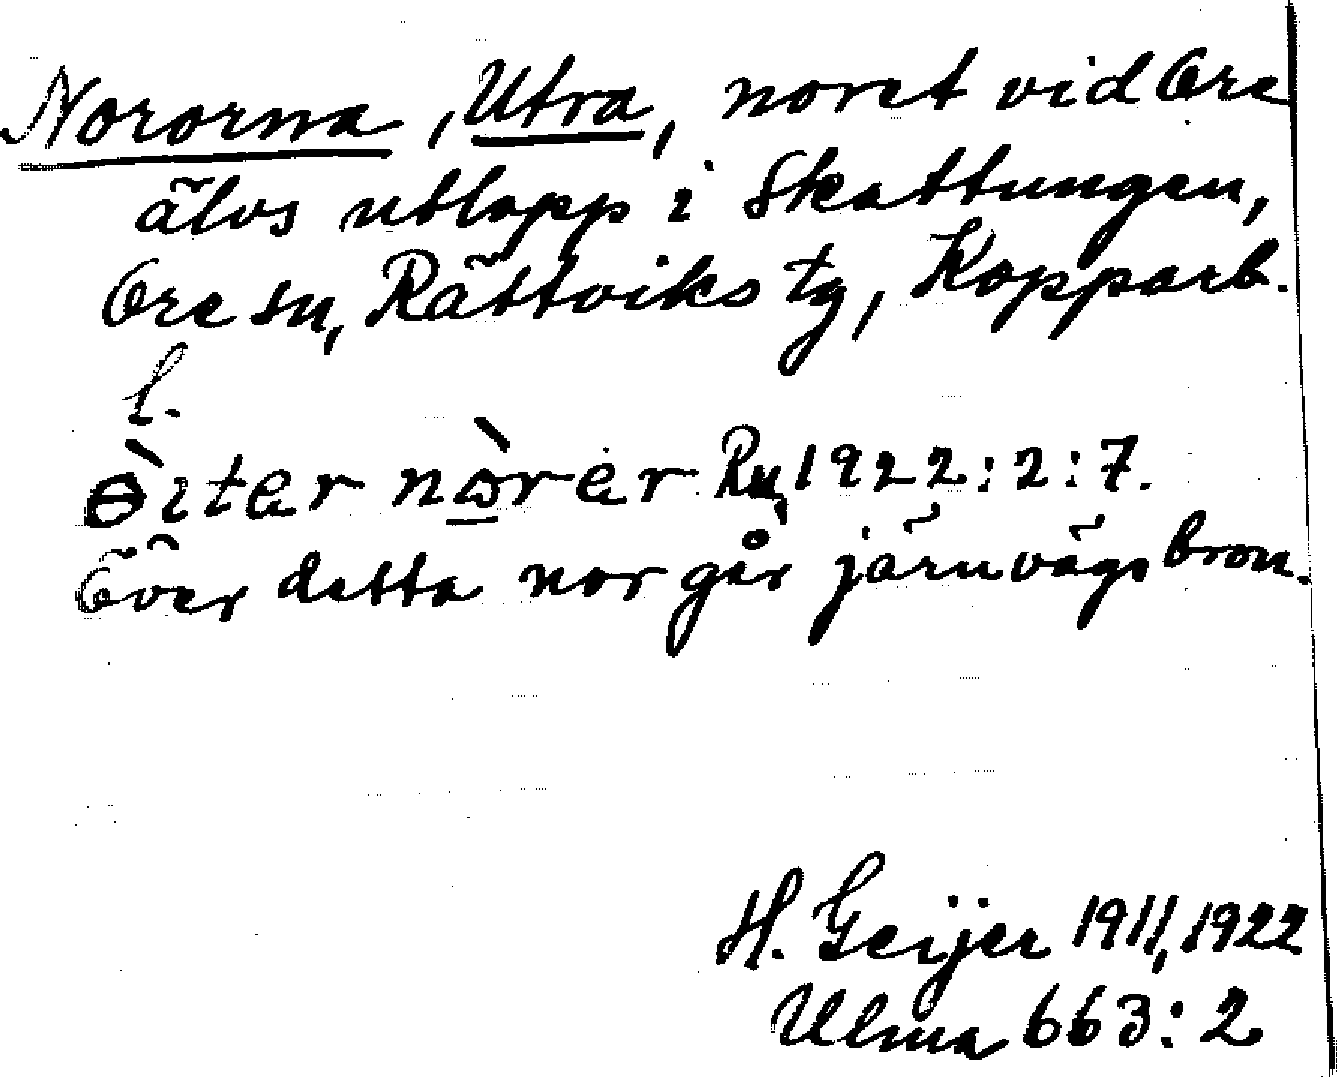 Nororna, Utra, noret vid Ore
älvs utlopp i Skattungen,
Ore sn, Rättviks tg, Kopparb.
l.
ɵ̀ıter nɔ̀rer Rk 1922:2:7.
Över detta nor går järnvägsbron.
H. Geijer 1911, 1922
Ulma 663:2